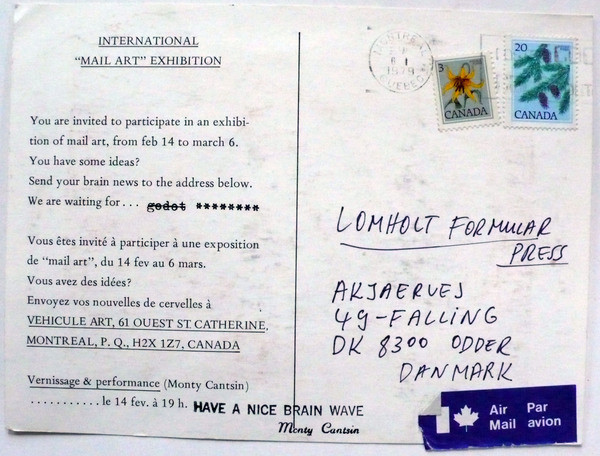 INTERNATIONAL
"MAIL ART" EXHIBITION
You are invited to participate in an exhibi-
tion of mail art, from feb 14 to march 6.
You have some ideas?
Send your brain news to the address below.
We are waiting for... godot ********
Vous êtes invité à participer à une exposition
de "mail art", du 14 fev au 6 mars.
Vous avez des idées?
Envoyez vos nouvelles de cervelles à
VEHICULE ART, 61 OUEST ST. CATHERINE,
MONTREAL, P. Q., H2X 1Z7, CANADA
Vernissage & performance (Monty Cantsin)
........... le 14 fev. à 19 h.
HAVE A NICE BRAIN WAVE
Monty Cantsin
MONTREAL
1979
QUEBEC
3
CANADA
20
CANADA
LOMHOLT FORMULAR
PRESS
AKJAERVEJ
49-FALLING
DK 8300 ODDER
DANMARK
Air Par
Mail avion